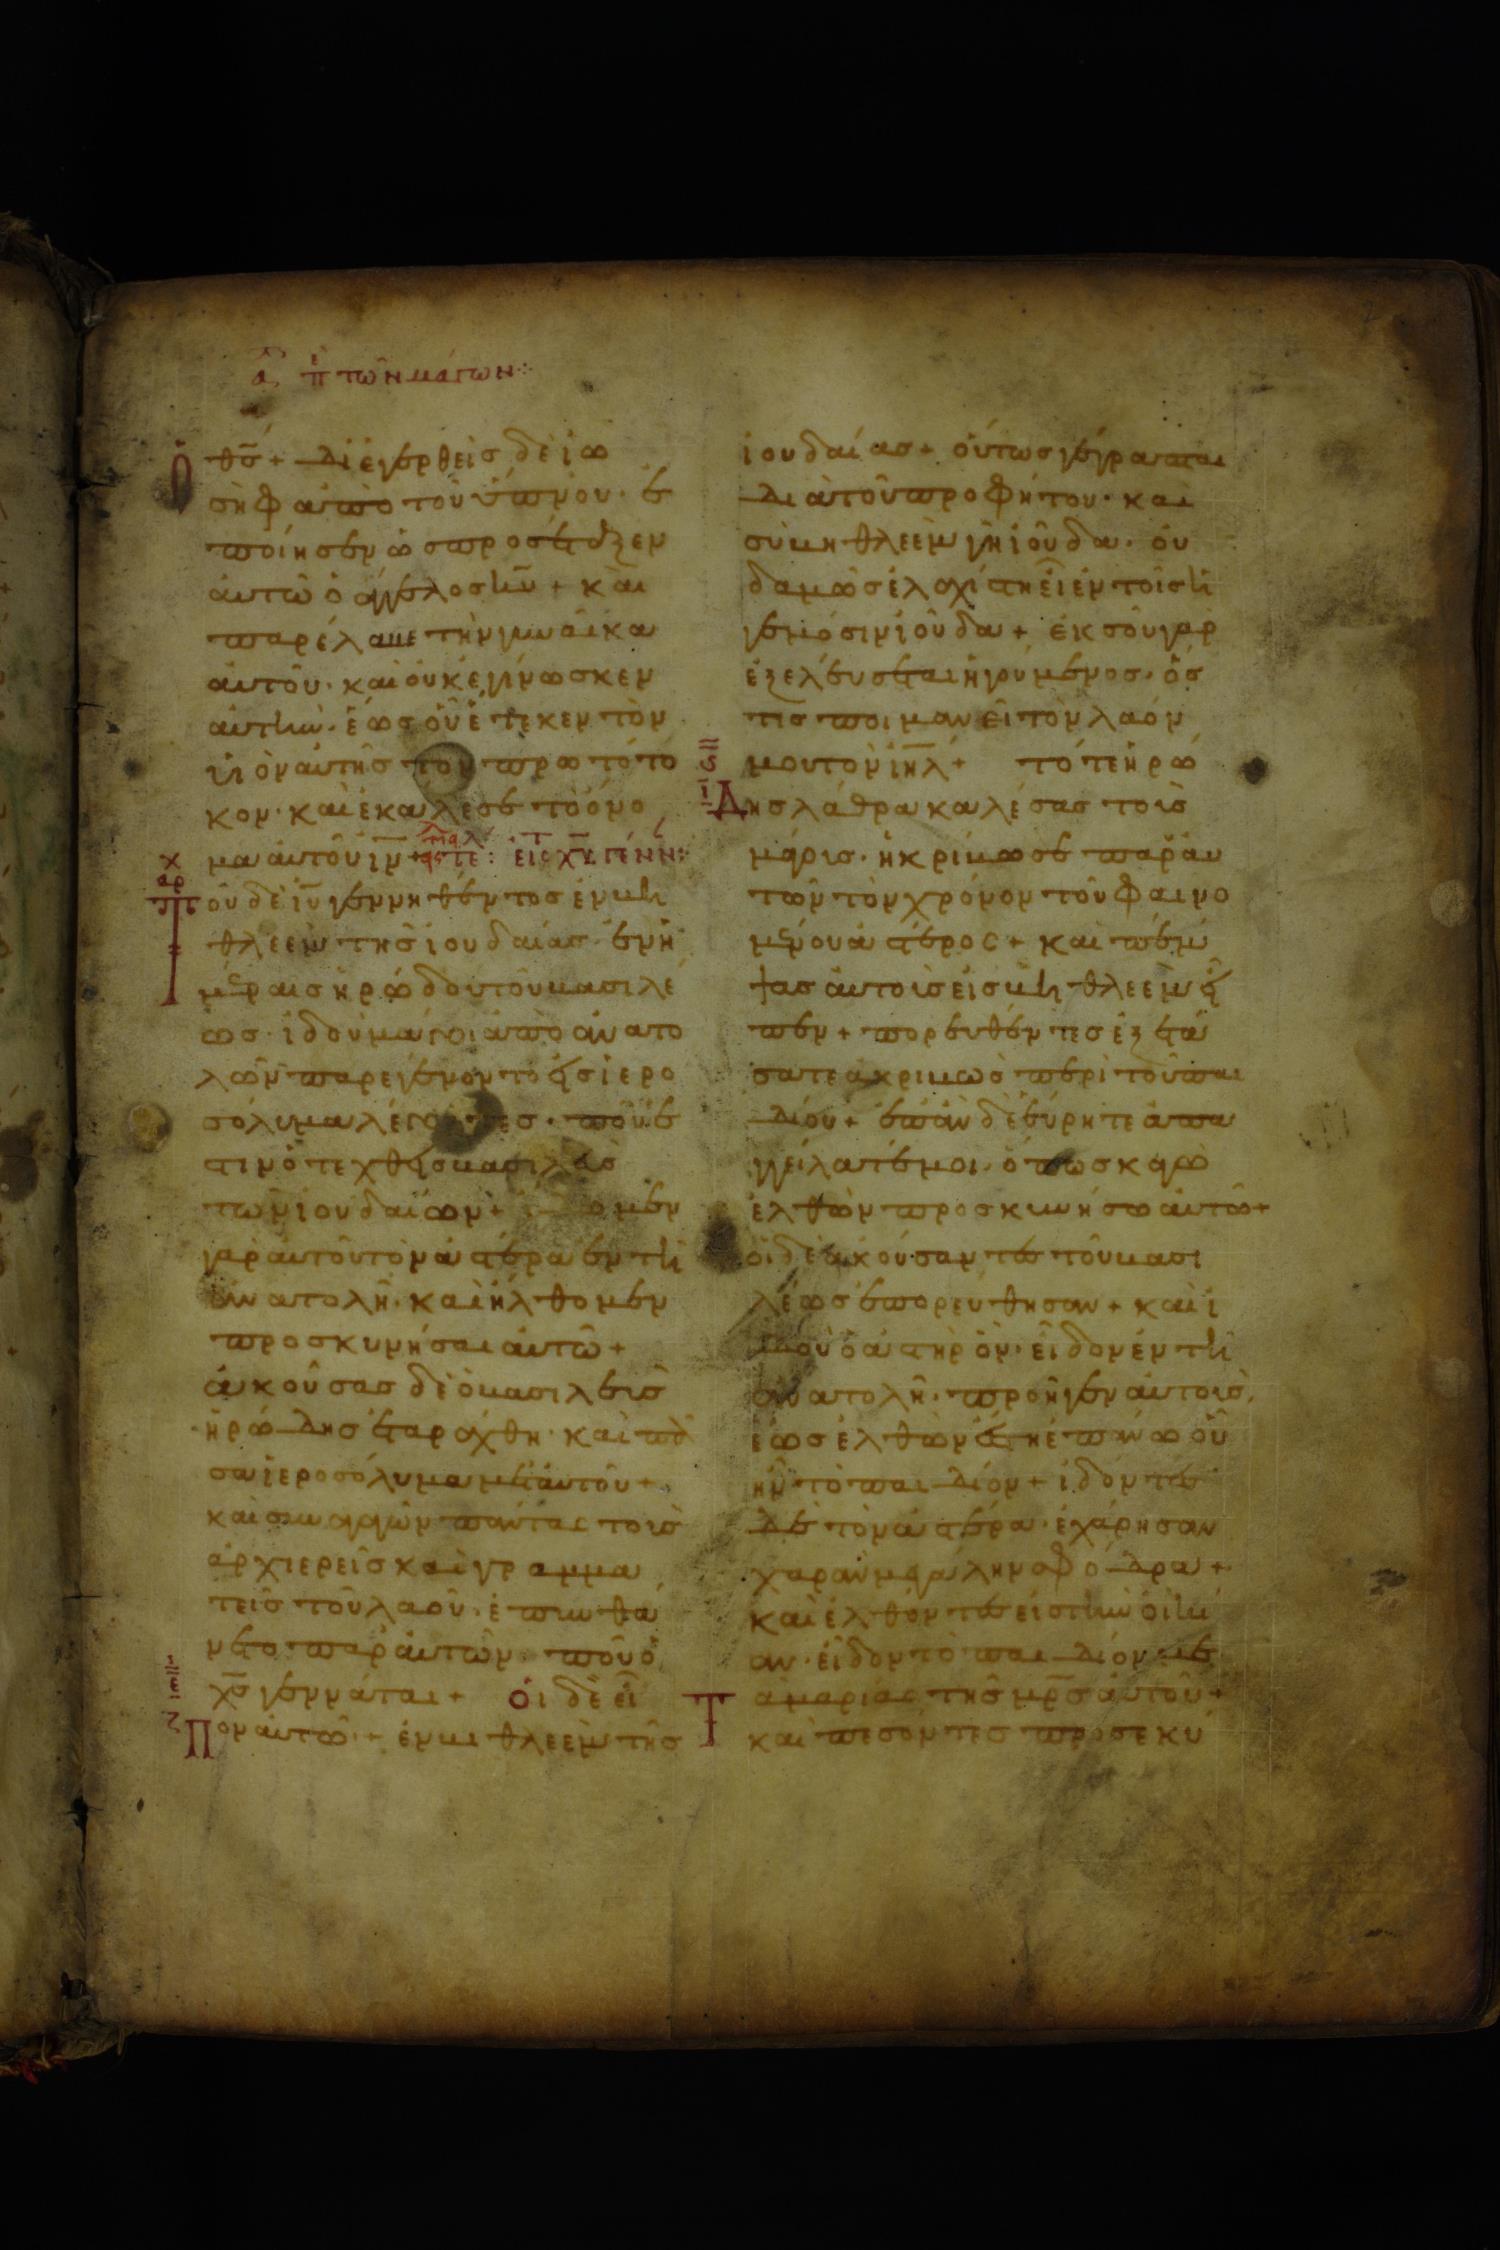 α π τῶν μάγων:
ὁ θ̅ς̅+ διεγερθεὶς δὲ ἰω
σὴφ ἀπὸ τοῦ ὕπνου· ἐ
ποίησεν ὡς προσέταξεν
αὐτῶ ὁ ἄγγελος κ̅υ̅+ καὶ
παρέλαβε τὴν γυναῖκα
αὐτοῦ· καὶ οὐκ ἐγίνωσκεν
αὐτὴν· ἕως οὗ ἔτεκεν τὸν
υἱὸν αὐτῆς τὸν πρωτότο
κον· καὶ ἐκάλεσε τὸ ὄνο
μα αὐτοῦ ι̅ν̅+ τε: εἰς χ̅υ̅ γένν:
χ
αρ
Τοῦ δὲ ι̅υ̅ γεννηθέντος ἐν βη
θλεεὶμ τῆς ἰουδαίας· ἐν ἡ
μέραις ἡρώδου τοῦ βασιλέ
ως· ἰδοὺ μάγοι ἀπὸ ἀνατο
λῶν παρεγένοντο εἰς ἱερο
σόλυμα λέγοντες· ποῦ ἐ
στιν ὁ τεχθεὶς βασιλεὺς
τῶν ἰουδαίων+ μεν
γὰρ αὐτοῦ τὸν ἀστέρα ἐν τῆ
ἀνατολῆ· καὶ ἤλθομεν
προσκυνῆσαι αὐτῶ+
ἀκούσας δὲ ὁ βασιλεὺς
ἡρώδης ἐταράχθη· καὶ πᾶ
σα ἱεροσόλυμα μετ αὐτοῦ+
καὶ συναγαγὼν πάντας τοὺς
ἀρχιερεῖς καὶ γραμμα
τεῖς τοῦ λαοῦ· ἐπυνθά
νετο παρ αὐτῶν· ποῦ ὁ
χ̅ς̅ γεννᾶται+ Οἱ δὲ εἶ
Πον αὐτῶ+ ἐν βηθλεεὶμ τῆς
ἰουδαίας+ οὕτως γέγραπται
διὰ τοῦ προφήτου· καὶ
σὺ βηθλεεὶμ γῆ ἰούδα· οὐ
δαμῶς ἐλαχίστη εἶ ἐν τοῖς ἡ
γεμόσιν ἰούδα+ ἐκ σοῦ γὰρ
ἐξελεύσεται ἡγούμενος· ὅσ
τις ποιμανεῖ τὸν λαόν
μου τὸν ι̅η̅λ̅+ τότε ἡρώ
Δης λάθρα καλέσας τοὺς
μάγους· ἠκρίβωσε παρ αὐ
τῶν τὸν χρόνον τοῦ φαινο
μένου ἀστέρος+ καὶ πέμ
ψας αὐτοὺς εἰς βηθλεεὶμ εἶ
πεν+ πορευθέντες ἐξετά
σατε ἀκριβῶς περὶ τοῦ παι
δίου+ ἐπὰν δὲ εὕρητε ἀπα
γγείλατέ μοι· ὅπως κἀγὼ
ἐλθὼν προσκυνήσω αὐτῶ+
οἱ δὲ ἀκούσαντες τοῦ βασι
λέως ἐπορεύθησαν+ καὶ ἰ
δοὺ ὁ ἀστὴρ ὃν εἶδον ἐν τῆ
ἀνατολῆ· προῆγεν αὐτοὺς,
ἕως ἐλθὼν ἔστη ἐπάνω οὗ
ἦν τὸ παιδίον+ ἰδόντες
δὲ τὸν ἀστέρα· ἐχάρησαν
χαρὰν μεγάλην σφόδρα+
καὶ ἐλθόντες εἰς τὴν οἰκί
αν· εἶδον τὸ παιδίον με
Τα μαρίας τῆς μ̅ρ̅ς̅ αὐτοῦ+
καὶ πεσόντες προσεκύ